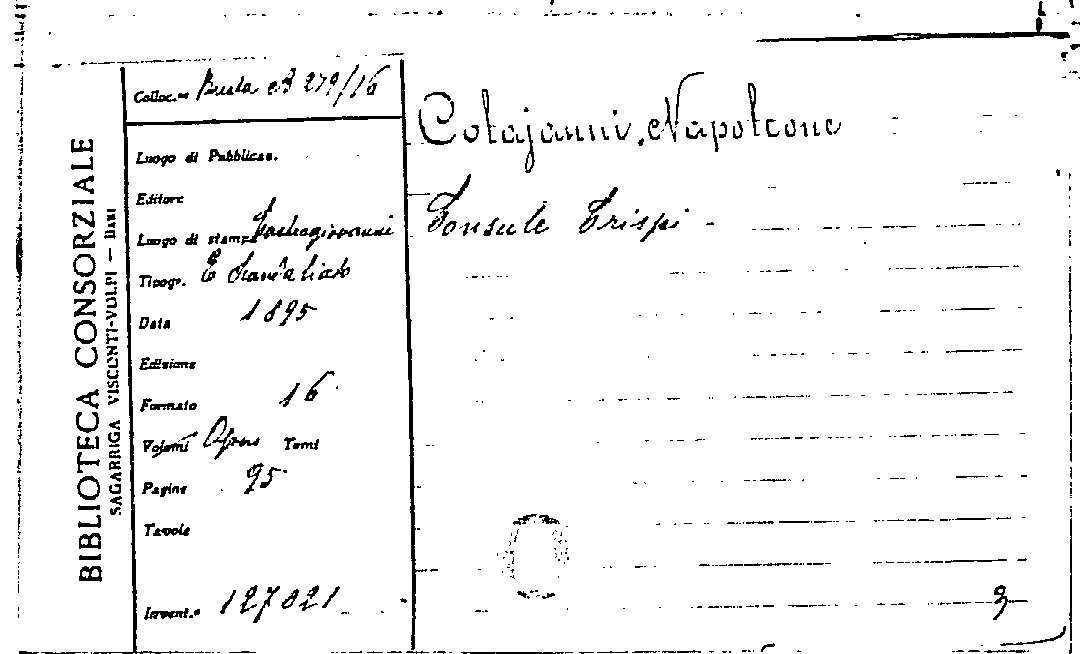 BIBLIOTECA CONSORZIALE
SAGARRIGA VISCONTI-VOLPI — BARI
Colloc.ne Busta B 279/16
Luogo di Pubblicaz.
Editore
Luogo di stampa Castrogiovanni
Tipogr.
Data 1895
Edizione
Formato 16
Volumi Opus Tomi
Pagine 95
Tavole
Invent.o 127021
Colajanni, Napoleone
Consule Crispi